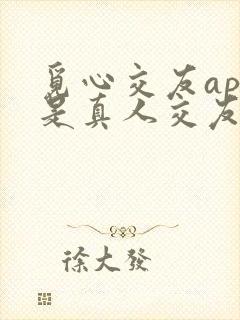 觅心交友ap
是真人交友
徐大發